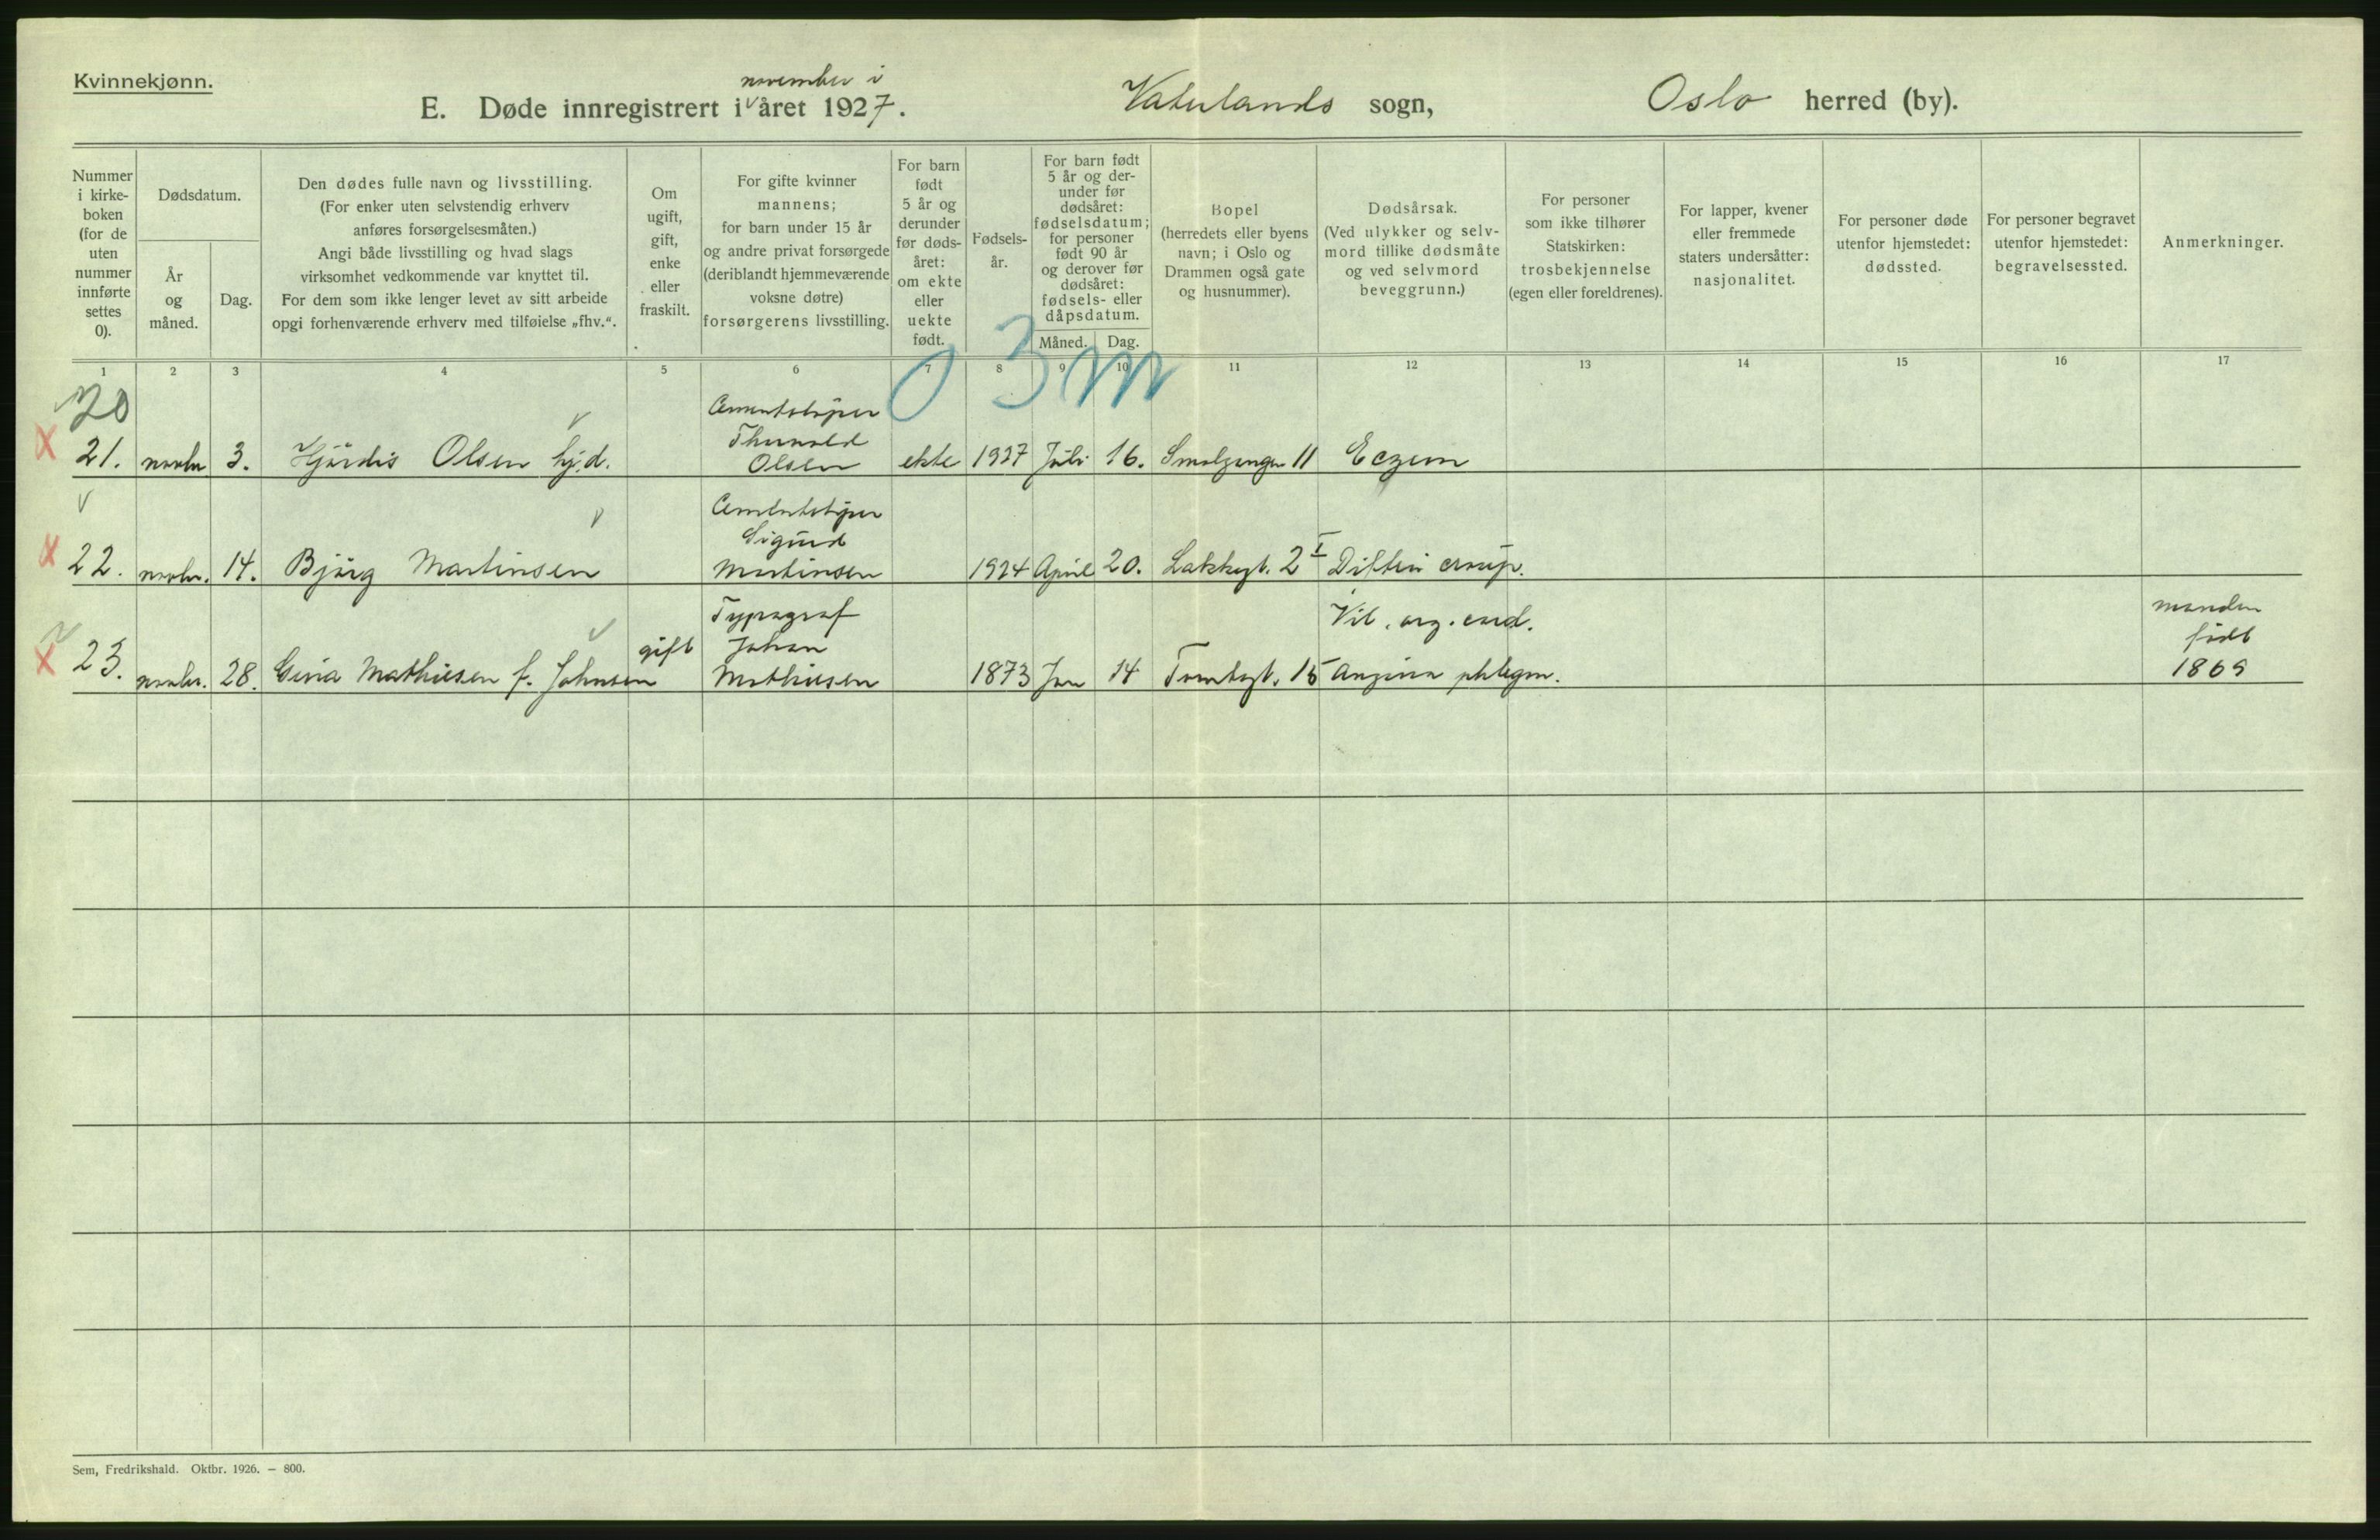 Kvinnekjønn.
november i
E. Døde innregistrert i året 1927. Vaterlands sogn, Oslo herred (by).
Nummer i kirke-boken (for de uten nummer innførte settes 0).
Dødsdatum.
År og måned.
Dag.
Den dødes fulle navn og livsstilling.
(For enker uten selvstendig erhverv
anføres forsørgelsesmåten.)
Angi både livsstilling og hvad slags
virksomhet vedkommende var knyttet til.
For dem som ikke lenger levet av sitt arbeide
opgi forhenværende erhverv med tilføielse „fhv.“.
Om
ugift,
gift,
enke
eller
fraskilt.
For gifte kvinner
mannens;
for barn under 15 år
og andre privat forsørgede
(deriblandt hjemmeværende
voksne døtre)
forsørgerens livsstilling.
For barn
født
5 år og
derunder
før døds-
året:
om ekte
eller
uekte
født.
Fødsels-
år.
For barn født
5 år og der-
under før
dødsåret:
fødselsdatum;
for personer
født 90 år
og derover før
dødsåret:
fødsels- eller
dåpsdatum.
Måned. Dag.
Bopel
(herredets eller byens
navn; i Oslo og
Drammen også gate
og husnummer).
Dødsårsak.
(Ved ulykker og selv-
mord tillike dødsmåte
og ved selvmord
beveggrunn.)
For personer
som ikke tilhører
Statskirken:
trosbekjennelse
(egen eller foreldrenes).
For lapper, kvener
eller fremmede
staters undersåtter:
nasjonalitet.
For personer døde
utenfor hjemstedet:
dødssted.
For personer begravet
utenfor hjemstedet:
begravelsessted.
Anmerkninger.
1 2 3 4 5 6 7 8 9 10 11 12 13 14 15 16 17
0 3 m
20
21. novbr 3. Hjørdis Olsen hj.d. Cementstøper Thorvald Olsen ekte 1927 Juli 16. Smalgangen 11 Eczem
22. novbr. 14. Bjørg Martinsen Cementstøper Sigurd Martinsen 1924 April 20. Lakkegt. 2 I Difteri croup.
23. novbr. 28. Gina Mathiesen f. Johnsen gift Typograf Johan Mathiesen 1873 Jan 14 Tomtegt. 15 Vit. org. cord. Angina phlegm. manden født 1869
Sem, Fredrikshald. Oktbr. 1926. — 800.